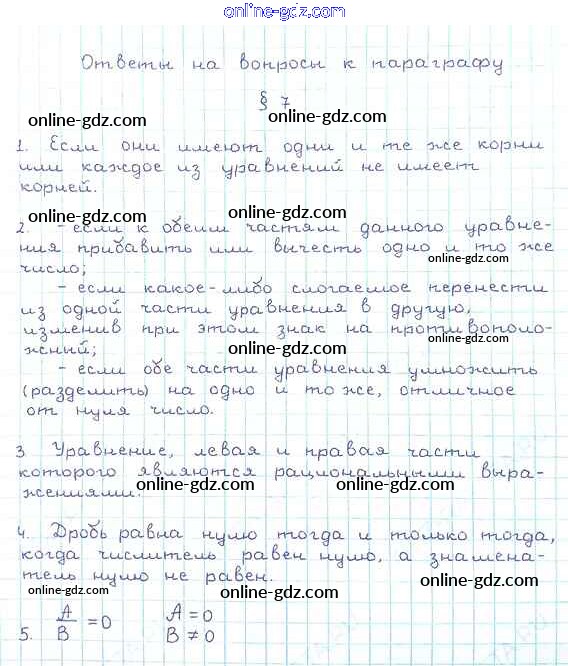 online-gdz.com
Ответы на вопросы к параграфу
online-gdz.com
§ 7
online-gdz.com
online-gdz.com
1. Если они имеют одни и те же корни
или каждое из уравнений не имеет
online-gdz.com
корней.
online-gdz.com
2. - если к обеим частям данного уравне-
ния прибавить или вычесть одно и то же
online-gdz.com
число;
online-gdz.com
- если какое-либо слогаемое перенести
из одной части уравнения в другую,
online-gdz.com
изменив при этом знак на противополо-
жный;
online-gdz.com
- если обе части уравнения умножить
online-gdz.com
(разделить) на одно и то же, отличное
от нуля число.
online-gdz.com
3 Уравнение, левая и правая части
online-gdz.com
которого являются рациональными выра-
жениями.
online-gdz.com
4. Дробь равна нулю тогда и только тогда,
online-gdz.com
когда числитель равен нулю, а знамена-
тель нулю не равен.
online-gdz.com
online-gdz.com
5. A/B =0 A=0
B≠0